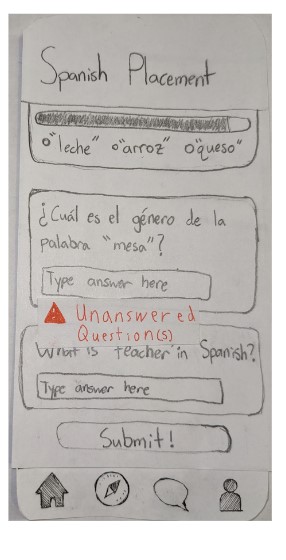 Spanish Placement
"leche" "arroz" "queso"
¿Cuál es el género de la
palabra "mesa"?
Type answer here
Unanswered
Question(s)
What is teacher in Spanish?
Type answer here
Submit!